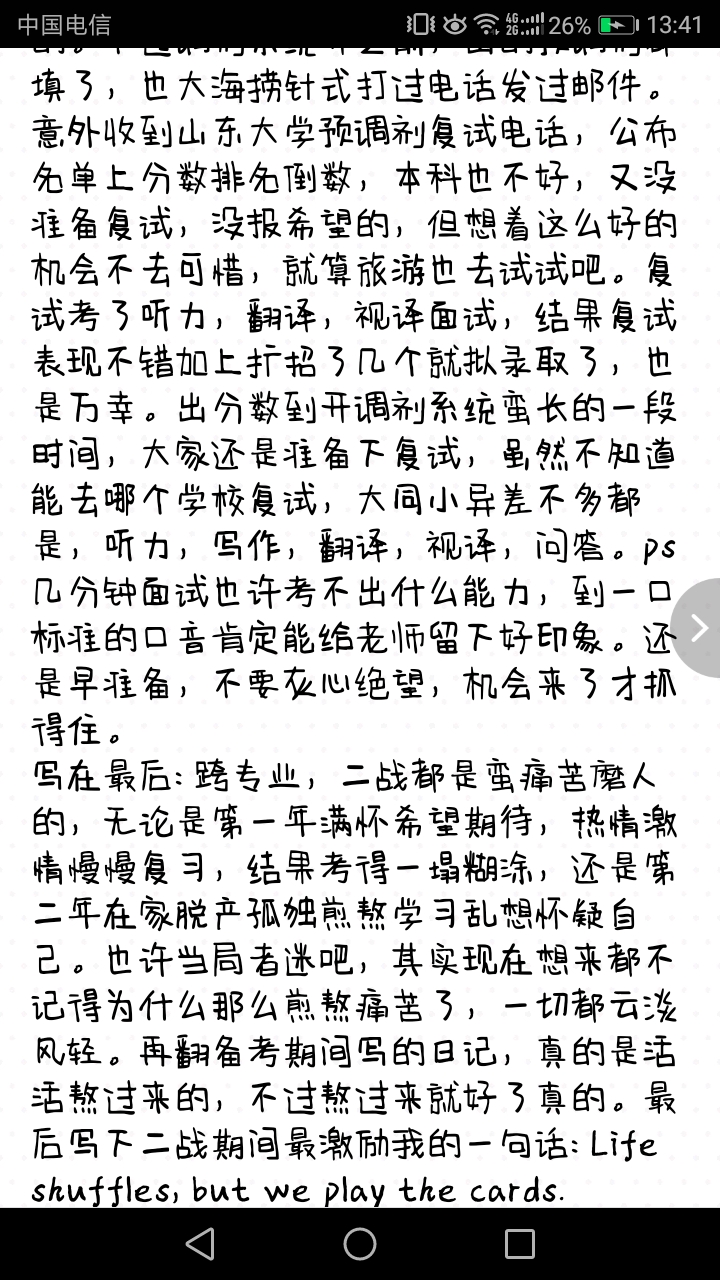 中国电信 4G 2G 26% 13:41
填了，也大海捞针式打过电话发过邮件。
意外收到山东大学预调剂复试电话，公布
名单上分数排名倒数，本科也不好，又没
准备复试，没报希望的，但想着这么好的
机会不去可惜，就算旅游也去试试吧。复
试考了听力，翻译，视译面试，结果复试
表现不错加上扩招了几个就拟录取了，也
是万幸。出分数到开调剂系统蛮长的一段
时间，大家还是准备下复试，虽然不知道
能去哪个学校复试，大同小异差不多都
是，听力，写作，翻译，视译，问答。ps
几分钟面试也许考不出什么能力，到一口
标准的口音肯定能给老师留下好印象。还
是早准备，不要灰心绝望，机会来了才抓
得住。
写在最后：跨专业，二战都是蛮痛苦磨人
的，无论是第一年满怀希望期待，热情激
情慢慢复习，结果考得一塌糊涂，还是第
二年在家脱产孤独煎熬学习乱想怀疑自
己。也许当局者迷吧，其实现在想来都不
记得为什么那么煎熬痛苦了，一切都云淡
风轻。再翻备考期间写的日记，真的是活
活熬过来的，不过熬过来就好了真的。最
后写下二战期间最激励我的一句话：Life
shuffles, but we play the cards.